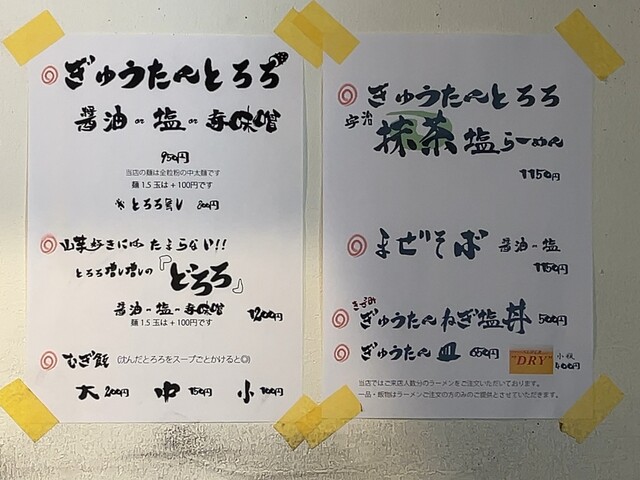 ぎゅうたんとろろ
醤油 or 塩 or 辛味噌
950円
当店の麺は全粒粉の中太麺です
麺 1.5 玉は + 100円です
※ とろろ無し 800円
山芋好きにはたまらない!!
とろろ増し増しの『どろろ』
醤油 or 塩 or 辛味噌 1200円
麺 1.5 玉は + 100円です
むぎ飯 (沈んだとろろをスープごとかけると◎)
大 200円 中 150円 小 100円
ぎゅうたんとろろ
宇治抹茶塩らーめん
1150円
まぜそば 醤油 or 塩
1150円
きざみ
ぎゅうたんねぎ塩丼 500円
ぎゅうたん皿 650円 "DRY" 小瓶 400円
当店ではご来店人数分のラーメンをご注文いただいております。
一品・飯物はラーメンご注文の方のみのご提供とさせていただきます。